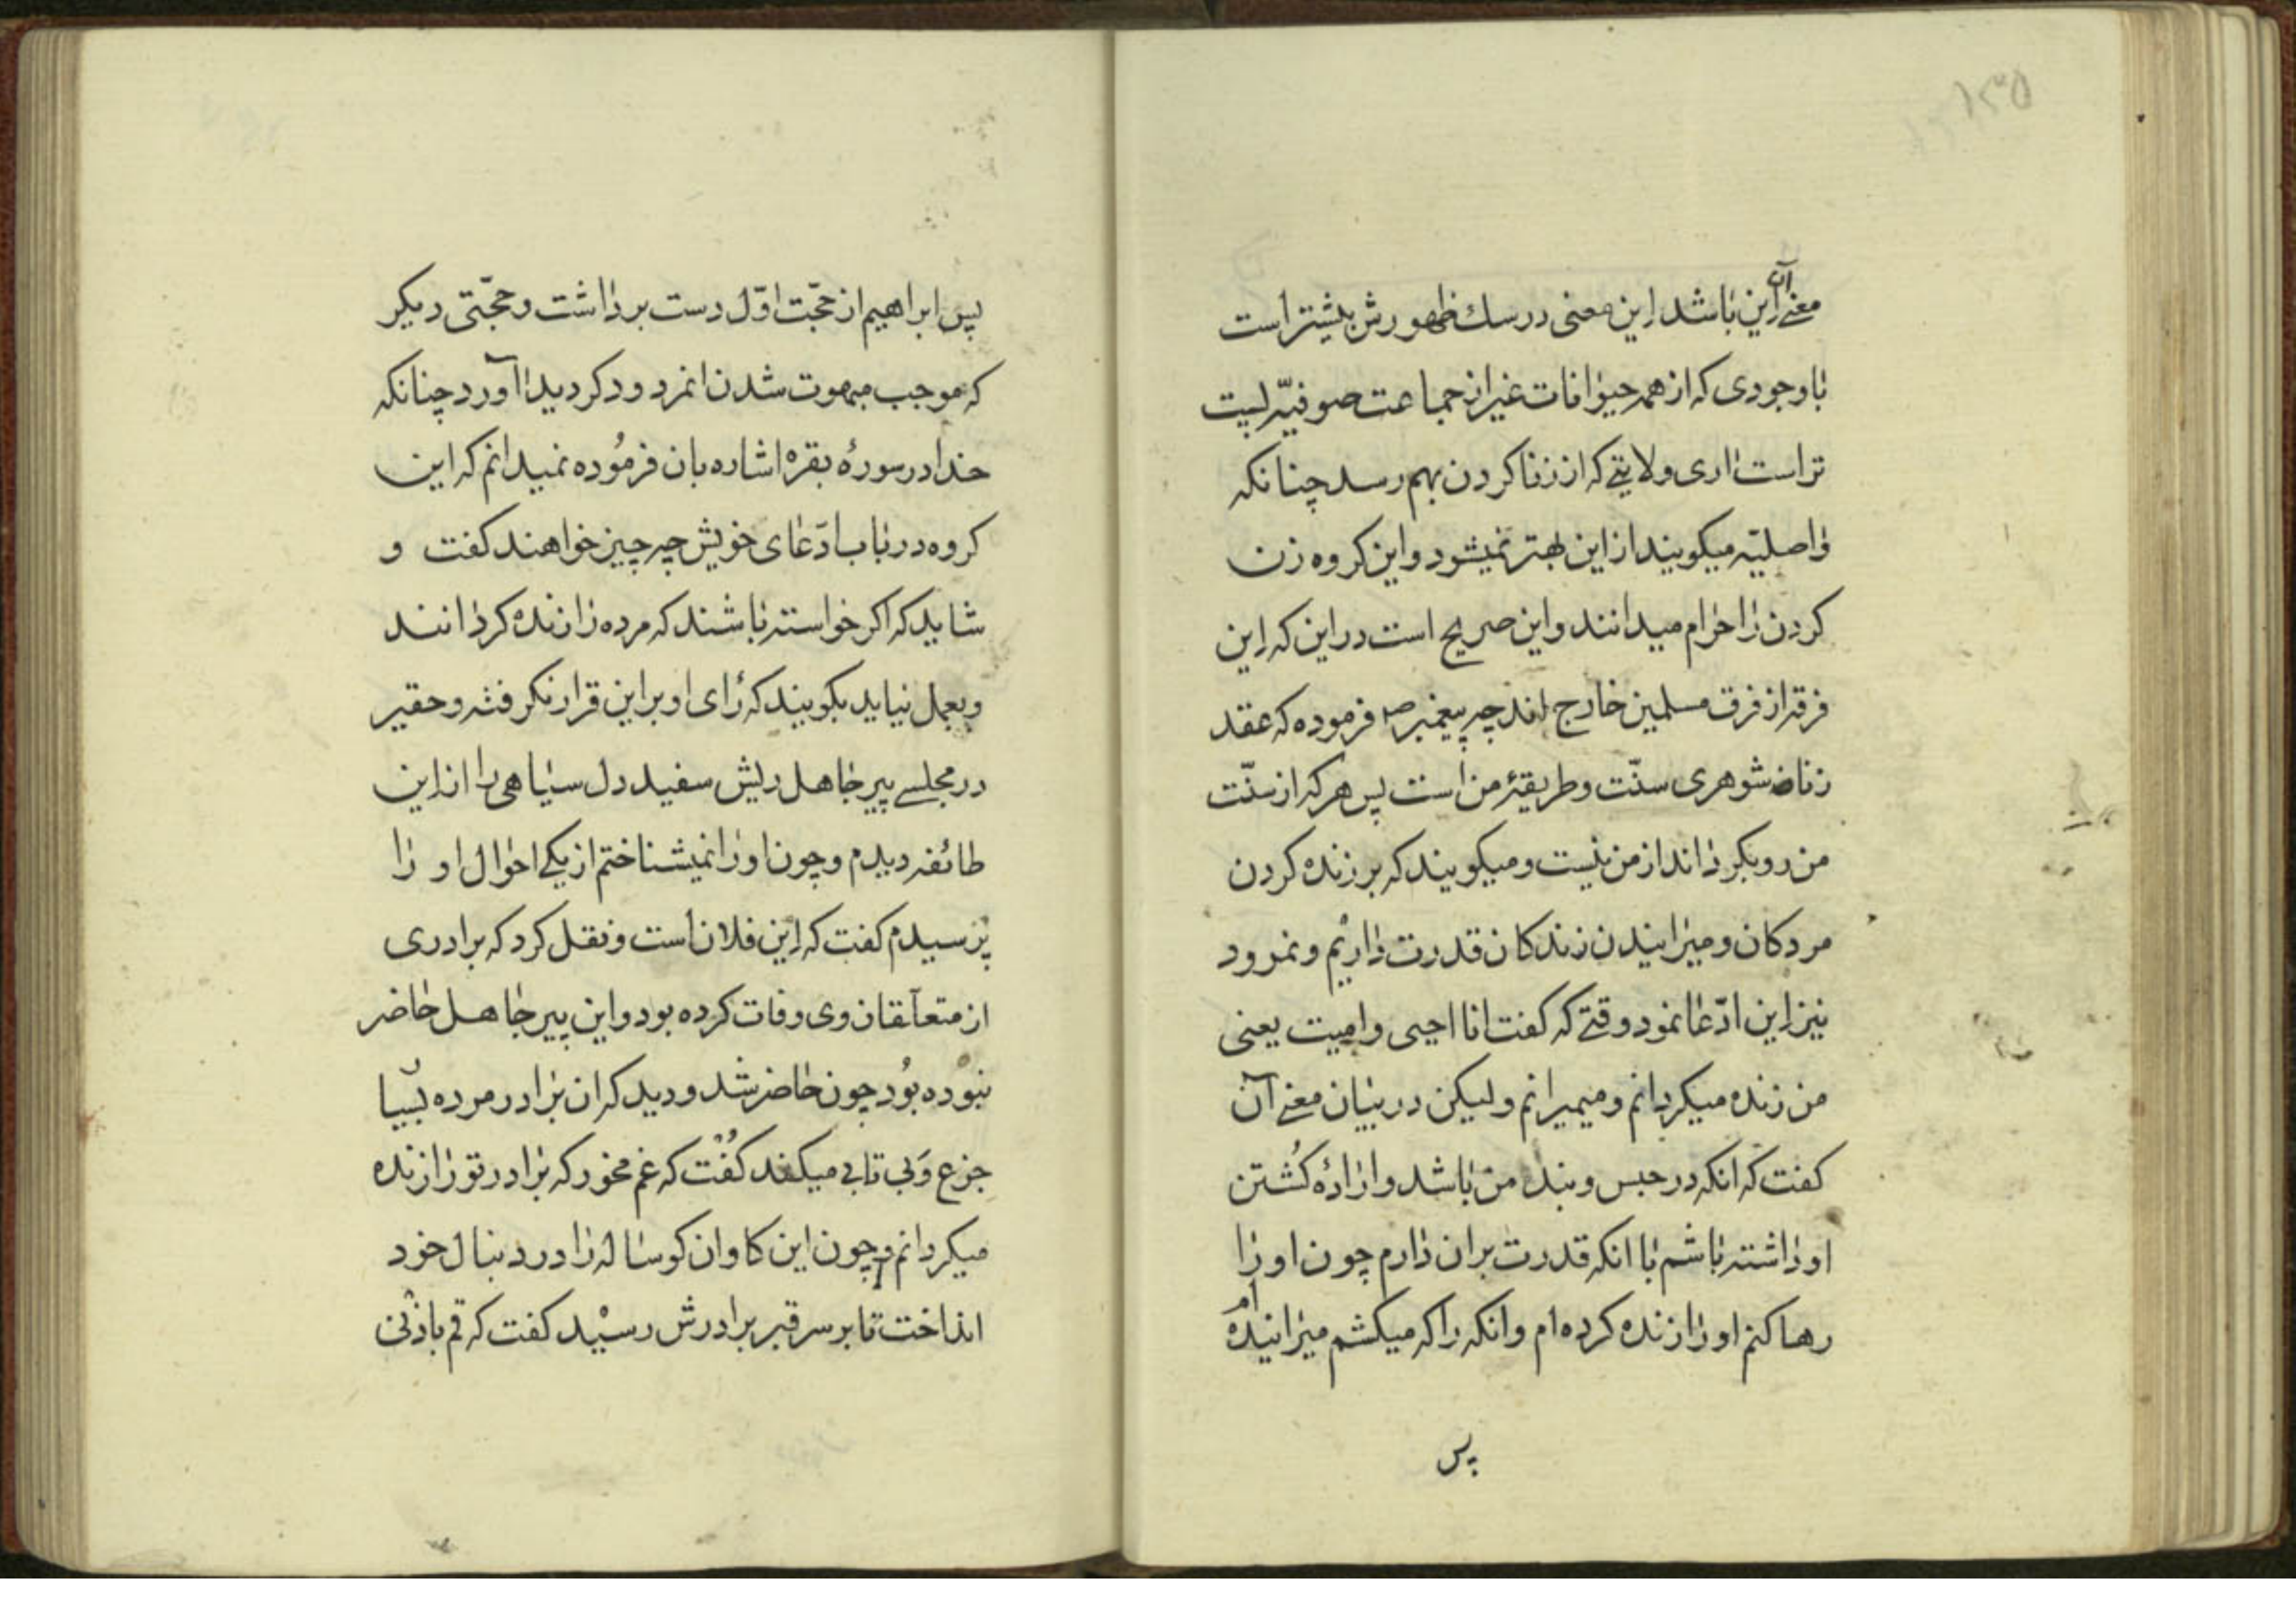 ۱۳۵
معنی آن این باشد این معنی در سك ظهورش بیشتر است
با وجودی که از همه حیوانات غیر از جماعت صوفیّه پست
تر است اری ولایتی که از زنا کردن بهم رسد چنانکه
واصلیّه میکویند از این بهتر نمیشود و این کروه زن
کردن را حرام میدانند و این صریح است در این که این
فرقه از فرق مسلمین خارج اند چه پیغمبر ص فرموده که عقد
زناشوهری سنّت و طریقهٔ من است پس هر که از سنّت
من رو بکرداند از من نیست و میکویند که بر زنده کردن
مردکان و میرانیدن زندکان قدرت داریم و نمرود
نیز این ادّعا نمود وقتی که کفت انا احیی وامیت یعنی
من زنده میکردانم و میمیرانم و لیکن در بیان معنی آن
کفت که انکه در حبس و بند من باشد و ارادهٔ کُشتن
او داشته باشم با انکه قدرت بران دارم چون او را
رها کنم او را زنده کرده ام و انکه را که میکشم میرانیده ام
پس
پس ابراهیم از حجّت اوّل دست برداشت و حجّتی دیکر
که موجب مبهوت شدن نمرود کردید آورد چنانکه
خدا در سورهٔ بقره اشاره بان فرمُوده نمیدانم که این
کروه در باب ادّعای خویش چه چیز خواهند کفت و
شاید که اکر خواسته باشند که مرده را زنده کردانند
و بعمل نیاید بکویند که رٔای او بر این قرار نکرفته و حقیر
در مجلسی پیر جاهل ریش سفید دل سیاهی را از این
طائفه دیدم و چون او را نمیشناختم از یکی احوال او را
پرسیدم کفت که این فلان است و نقل کرد که برادری
از متعلّقان وی وفات کرده بود و این پیر جاهل حاضر
نبوده بُود چون حاضر شد و دید که ان برادر مرده بسیا
جزع وَ بی تابی میکند کُفت که غم مخور که برادر تو را زنده
میکردانم و چون این کاو ان کوساله را در دنبال خود
انداخت تا بر سر قبر برادرش رسیْد کفت که قم باذنی